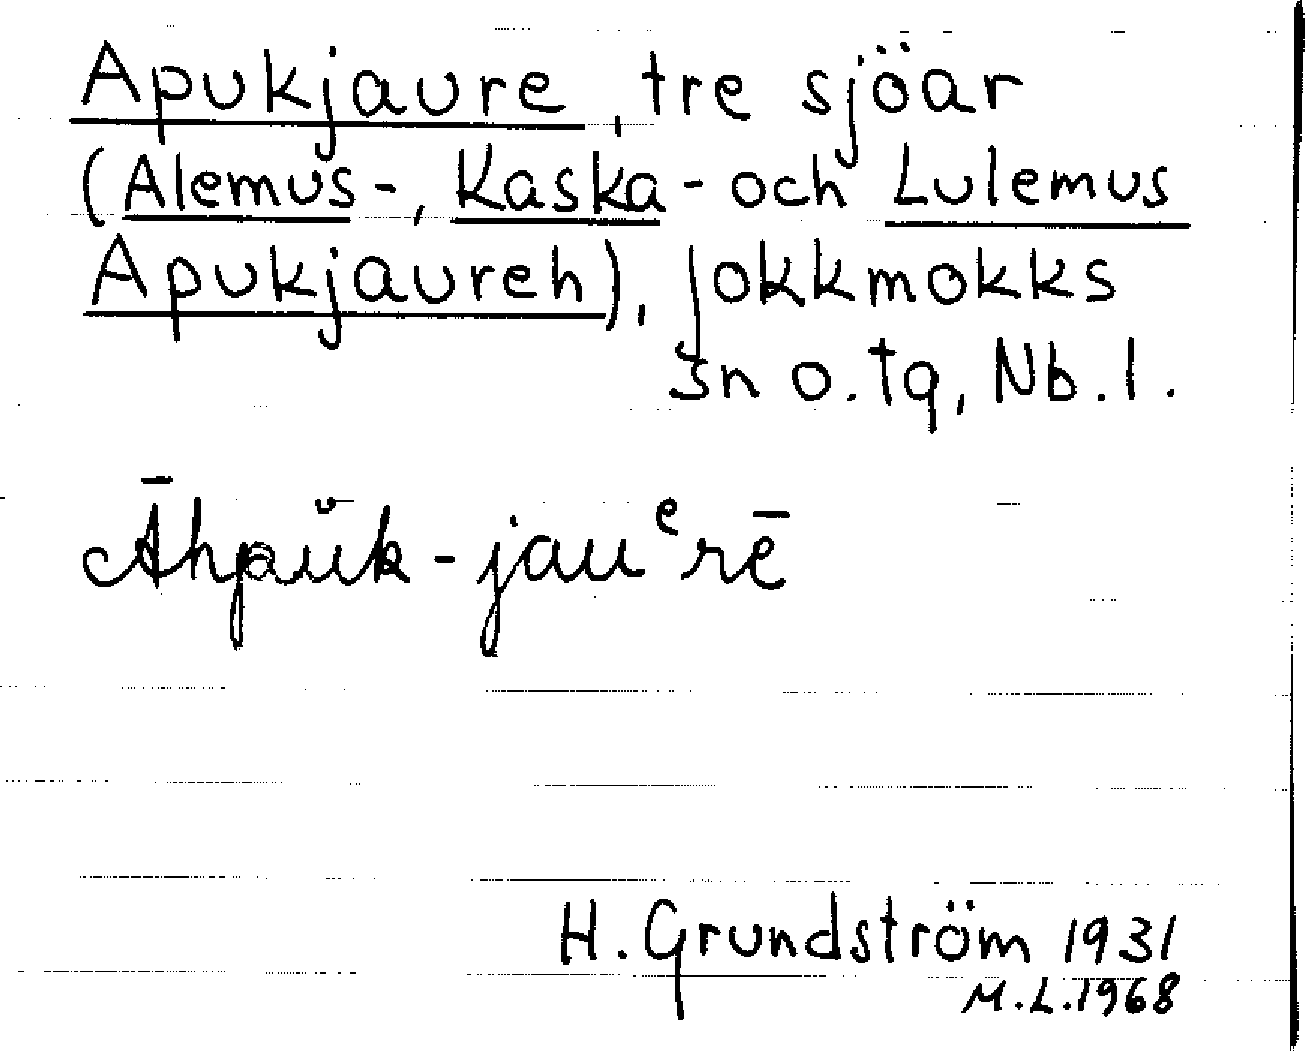 Apukjaure, tre sjöar
(Alemus-, Kaska- och Lulemus
Apukjaureh), Jokkmokks
sn o. tg, Nb. l.
Āhpŭk-jauᵉrē
H. Grundström 1931
M.L. 1968